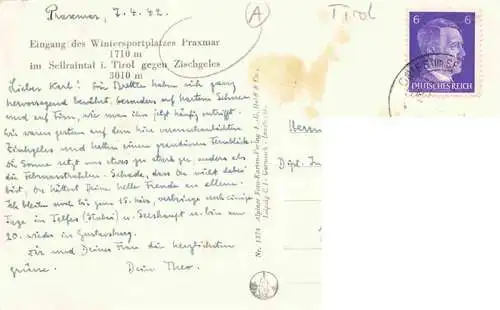 Praxmar, 7.4.42.
A
Tirol
Eingang des Wintersportplatzes Praxmar
1710 m
im Sellraintal i. Tirol gegen Zischgeles
3010 m
6 6
DEUTSCHES REICH
Lieber Karl! Die Bretter haben sich ganz
hervorragend bewährt, besonders auf hartem Schnee
und auf Firn, wie man ihn jetzt häufig antrifft.
Wir waren gestern auf dem hier
Zischgeles und hatten einen grandiosen Fernblick.
Die Sonne setzt uns etwas zu stark zu, anders als
die Februarstrahlen. Schade, dass Du nicht dabei
bist, Du hättest Deine helle Freude an allem.
Ich bleibe noch bis zum 15. hier, verbringe noch einige
Tage in Telfes (Stubai) u. Seeshaupt u. bin am
20. wieder in Gustavsburg.
Dir und Deiner Frau die herzlichsten
Grüsse. Dein Theo.
Herrn
Dipl. In
Nr. 1374 Alpiner Foto-Karten-Verlag